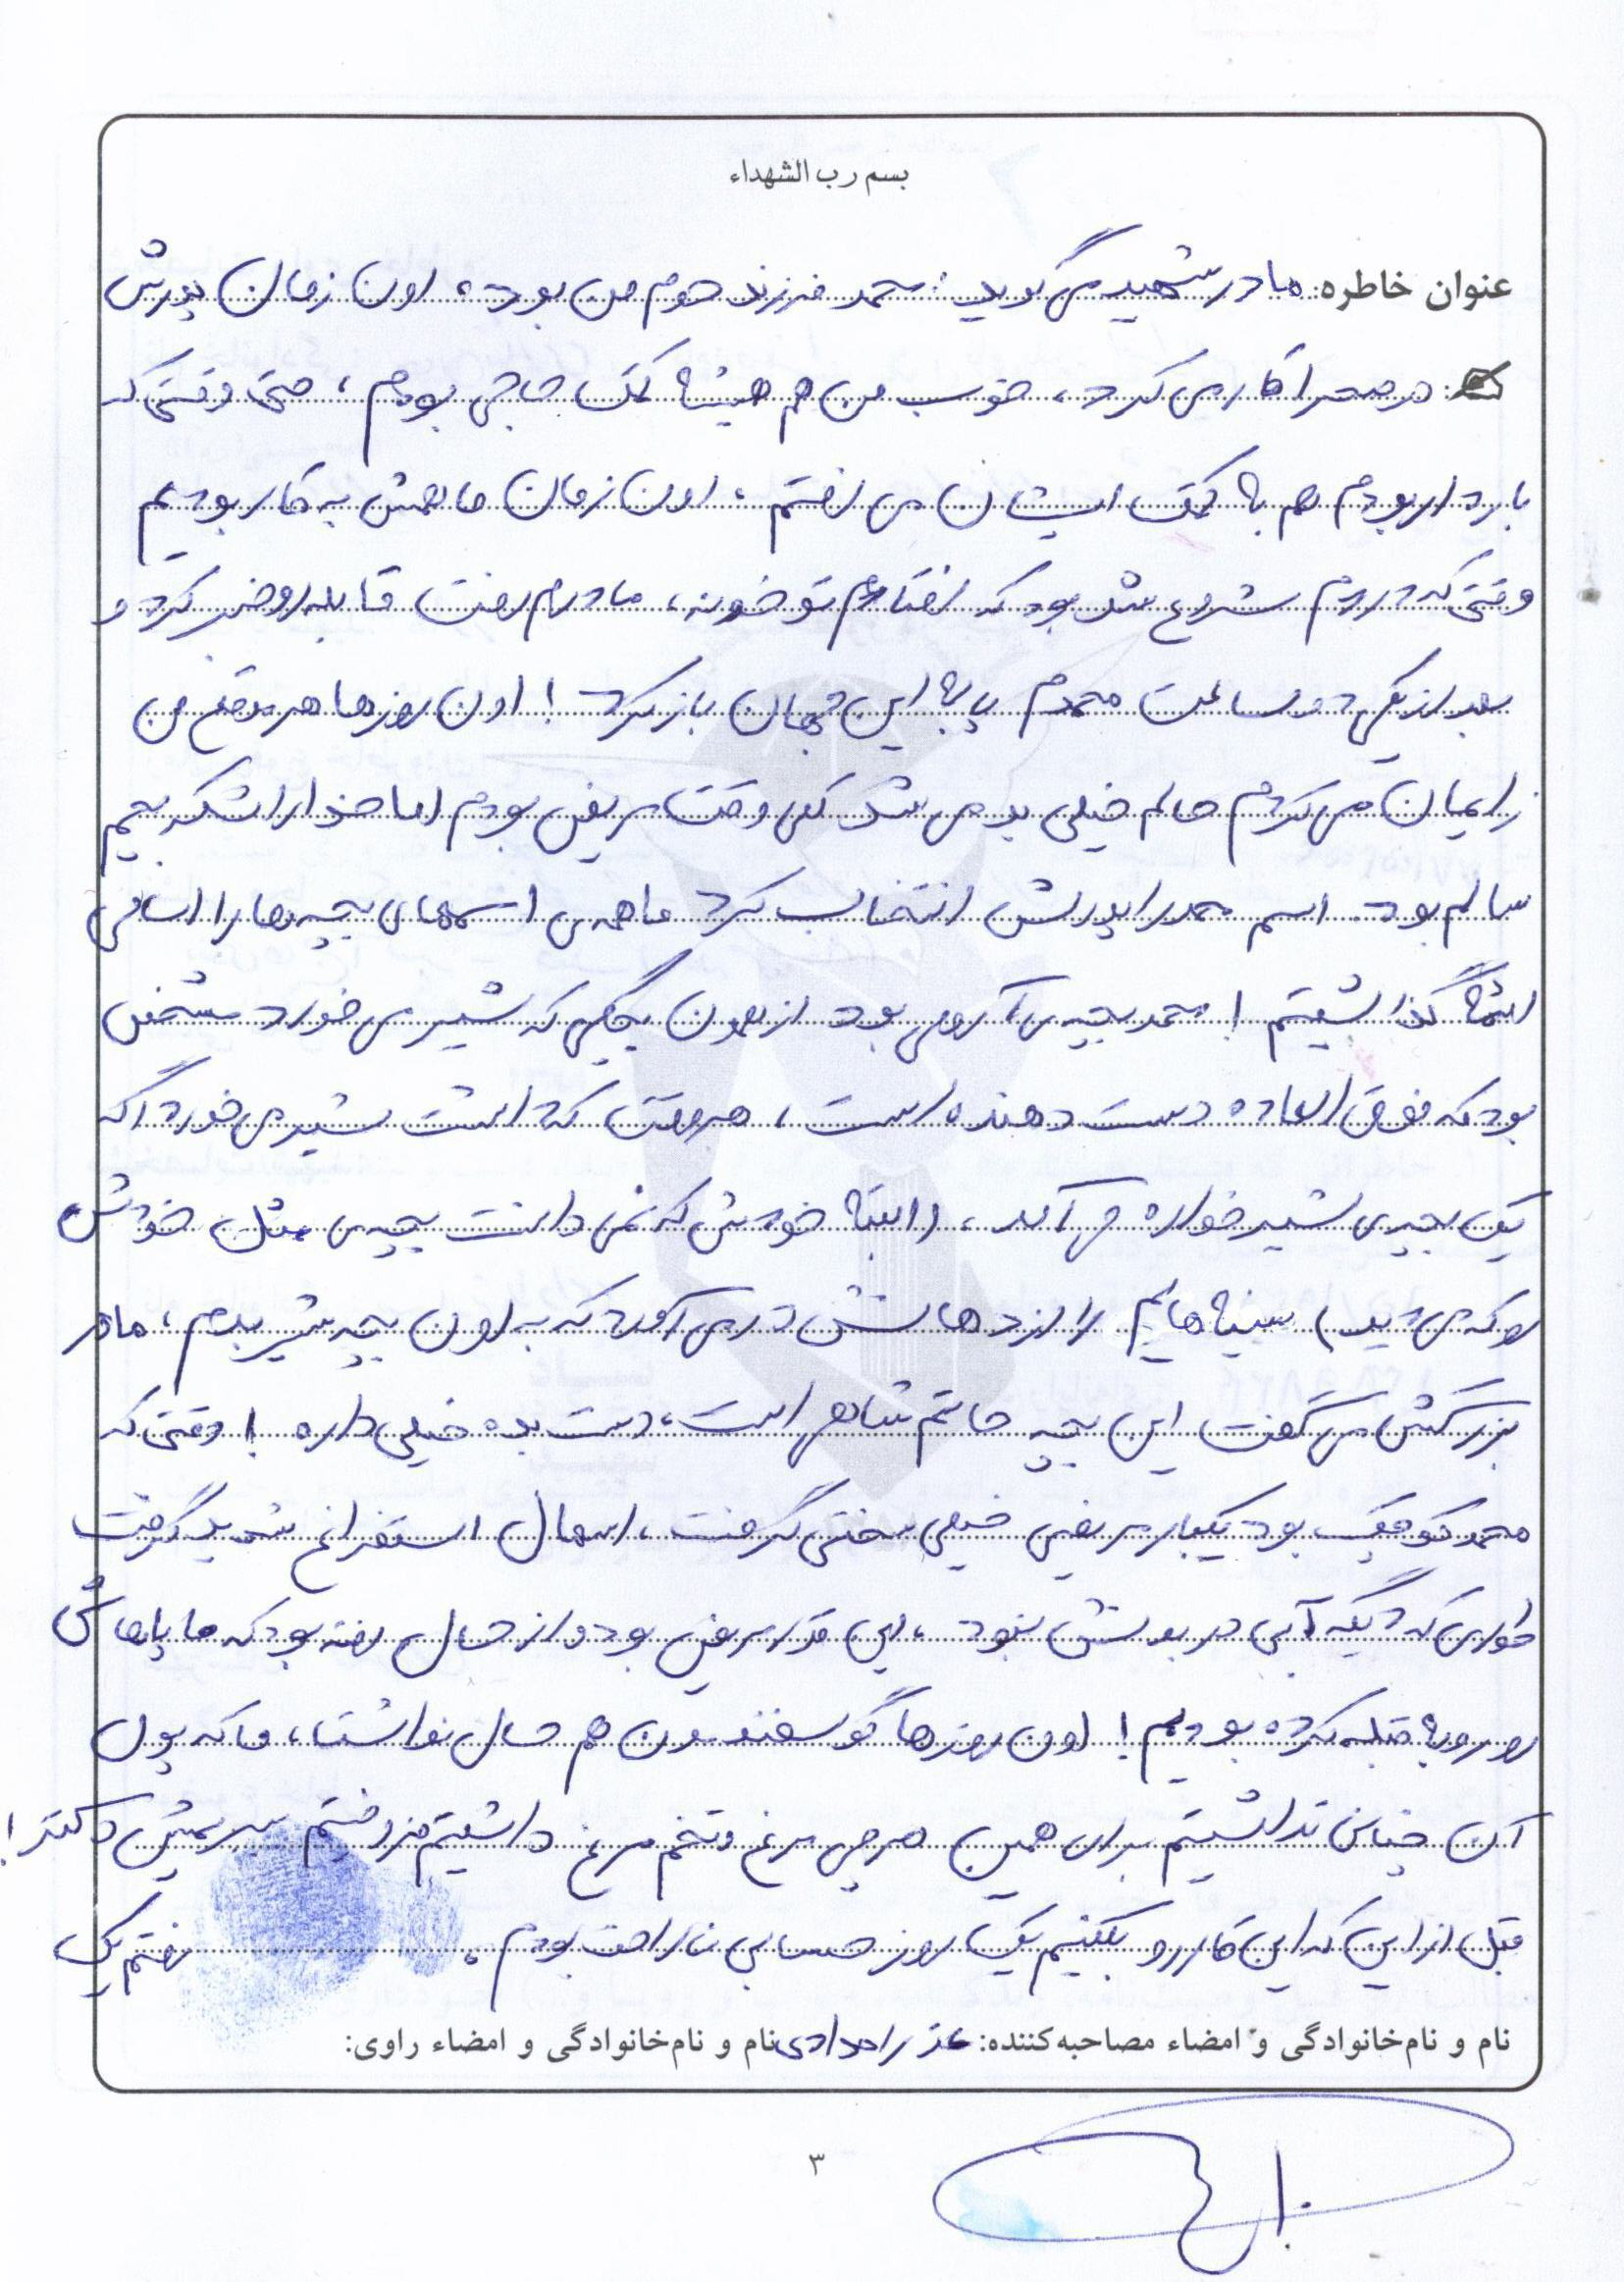 بسم رب الشهداء
عنوان خاطره: مادر شهید می گوید: محمد فرزند دوم من بود، اون زمان پدرش
در صحرا کار می کرد، خوب من هم همیشه کمک حاجی بودم، حتی وقتی که
باردار بودم هم به کمک ایشان می رفتم، اون زمان ما همش به کار بودیم
وقتی که دردم شروع شده بود که افتادم تو خونه، مادرم رفت قابله رو خبر کرد و
بعد از یکی دو ساعت محمدم پا به این جهان باز کرد! اون روزها هر موقع من
زایمان می کردم حالم خیلی بد می شد کلی وقت مریض بودم اما خدا را شکر بچم
سالم بود. اسم محمد را پدرش انتخاب کرد ما همه ی اسمهای بچه ها را اسامی
ائمه گذاشیتم! محمد بچه ی آرومی بود از همون بچگی که شیر می خورد مشخص
بود که فوق العاده دست دهنده است، هر وقت که داشت شیر می خورد اگه
یک بچه ی شیر خواره می آمد، (البته خودش که نمی دانست بچه ی مثل خودش
رو که می دید) سینه هایم را از دهانش در می آورد که به اون بچه شیر بدم، مادر
بزرگش می گفت این بچه حاتم شاهی است، دست بده خیلی داره! وقتی که
محمد کوچک بود یکبار مریضی خیلی سختی گرفت، اسهال استفراغ شدید گرفت
طوری که دیگه آبی در بدنش نبود، این قدر مریض بود و از حال رفته بود که ما پاهاش
رو رو به قبله کرده بودیم! اون روزها گوسفندمون هم حال نداشت، ما که پول
آن چنانی نداشیتم برای همین هر چی مرغ و تخم مرغ داشیتم فروختم بردیمش دکتر!
قبل از این که این کار رو بکنیم یک روز حسابی ناراحت بودم، رفتم یک
نام و نام‌خانوادگی و امضاء مصاحبه‌کننده: عذرا مرادی نام و نام‌خانوادگی و امضاء راوی:
۳